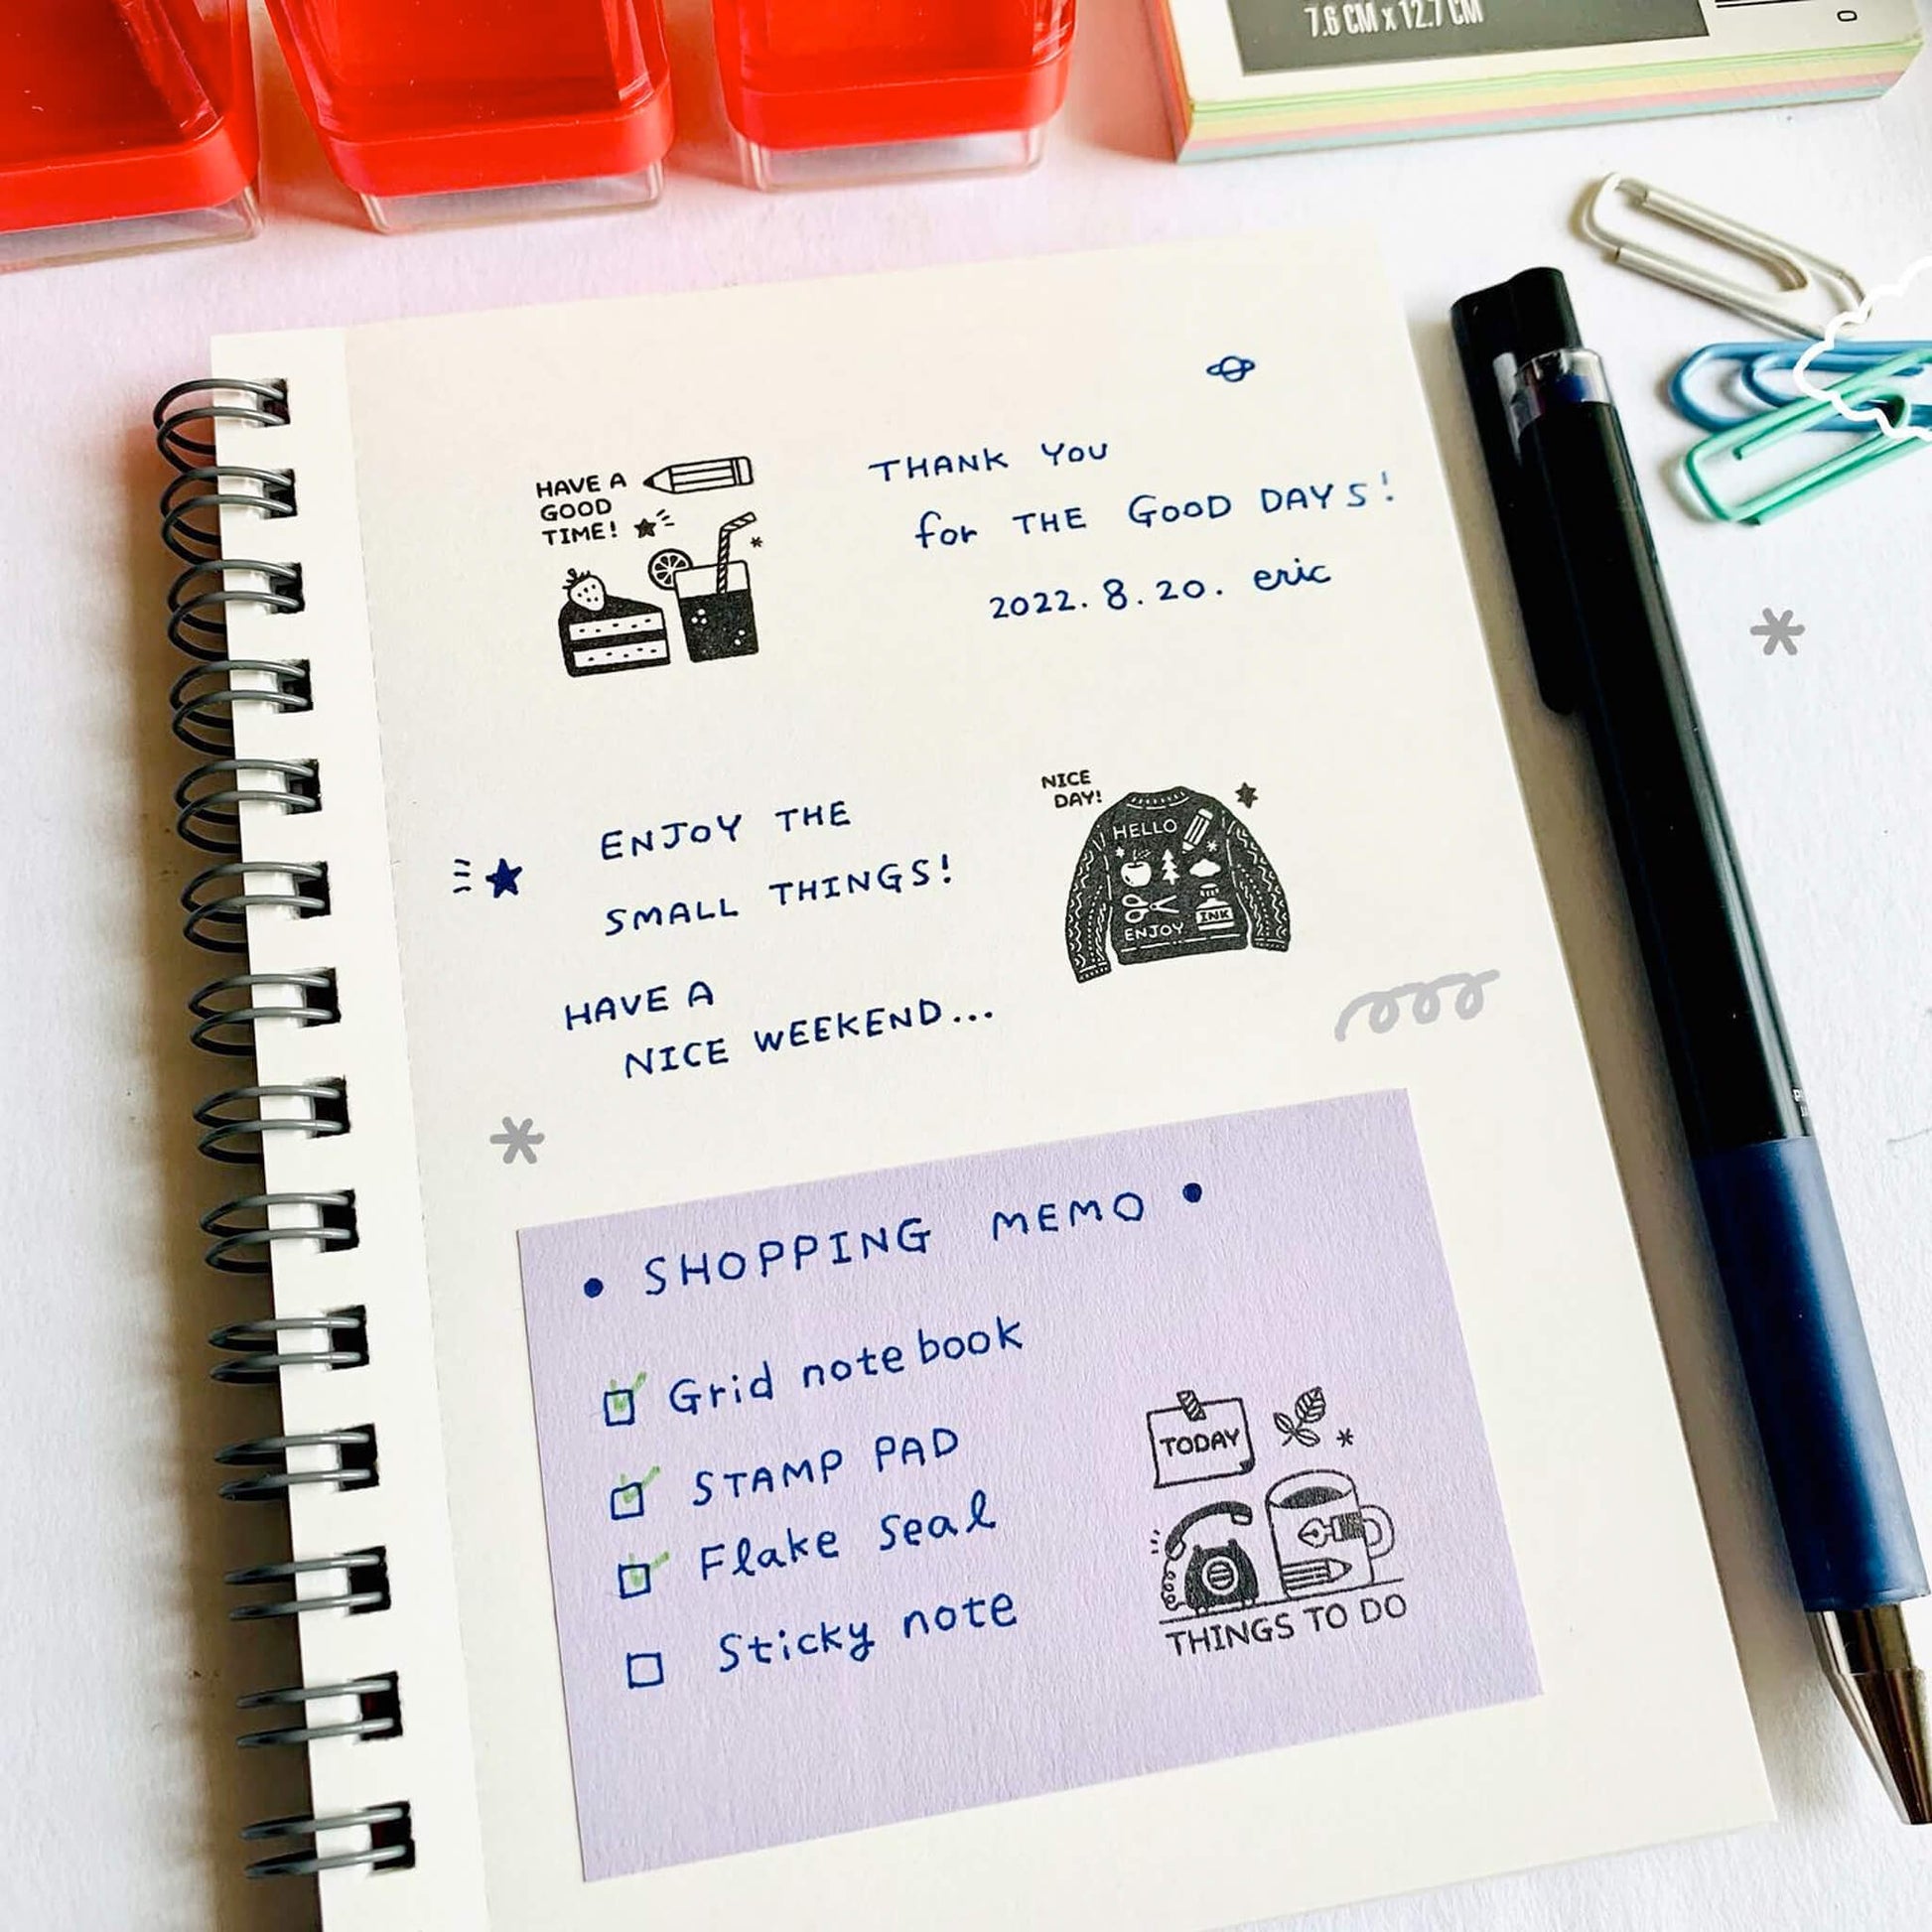 7.6 CM x 12.7 CM
HAVE A
GOOD
TIME!
THANK YOU
for THE GOOD DAYS!
2022. 8. 20. eric
ENJOY THE
SMALL THINGS!
HAVE A
NICE WEEKEND...
NICE
DAY!
HELLO
INK
ENJOY
• SHOPPING MEMO •
Grid notebook
STAMP PAD
Flake Seal
Sticky note
TODAY
THINGS TO DO